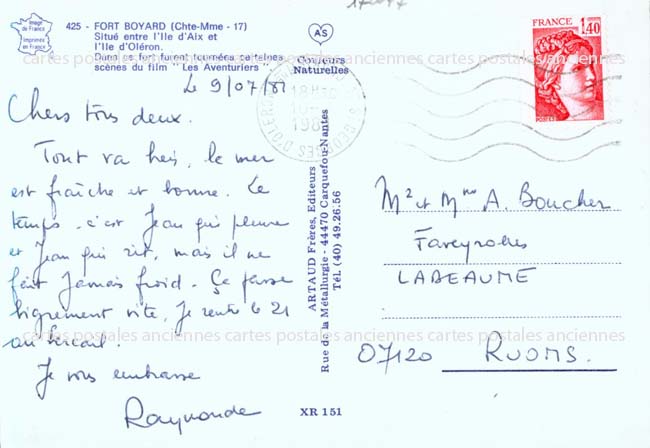 425 - FORT BOYARD (Chte-Mme - 17)
Situé entre l'Ile d'Aix et
l'Ile d'Oléron.
Dans ce fort furent tournées certaines
scènes du film " Les Aventuriers "
Image
de France
Imprimée
en France
AS
Couleurs
Naturelles
FRANCE
1,40
POSTES
18H
198
Le 9/07/81
Chers tous deux.
Tout va bien, la mer
est fraîche et bonne. Le
temps, c'est Jean qui pleure
et Jean qui rit, mais il ne
fait jamais froid. Ça passe
bigrement vite, je rentre le 21
au bercail.
Je vous embrasse
Raymonde
ARTAUD Frères, Editeurs
Rue de la Métallurgie - 44470 Carquefou-Nantes
Tél. (40) 49.26.56
XR 151
Mr et Mme A. Boucher
LABEAUME
07120 RUOMS.
cartes postales anciennes cartes postales anciennes cartes postales anciennes
cartes postales anciennes cartes postales anciennes cartes postales anciennes